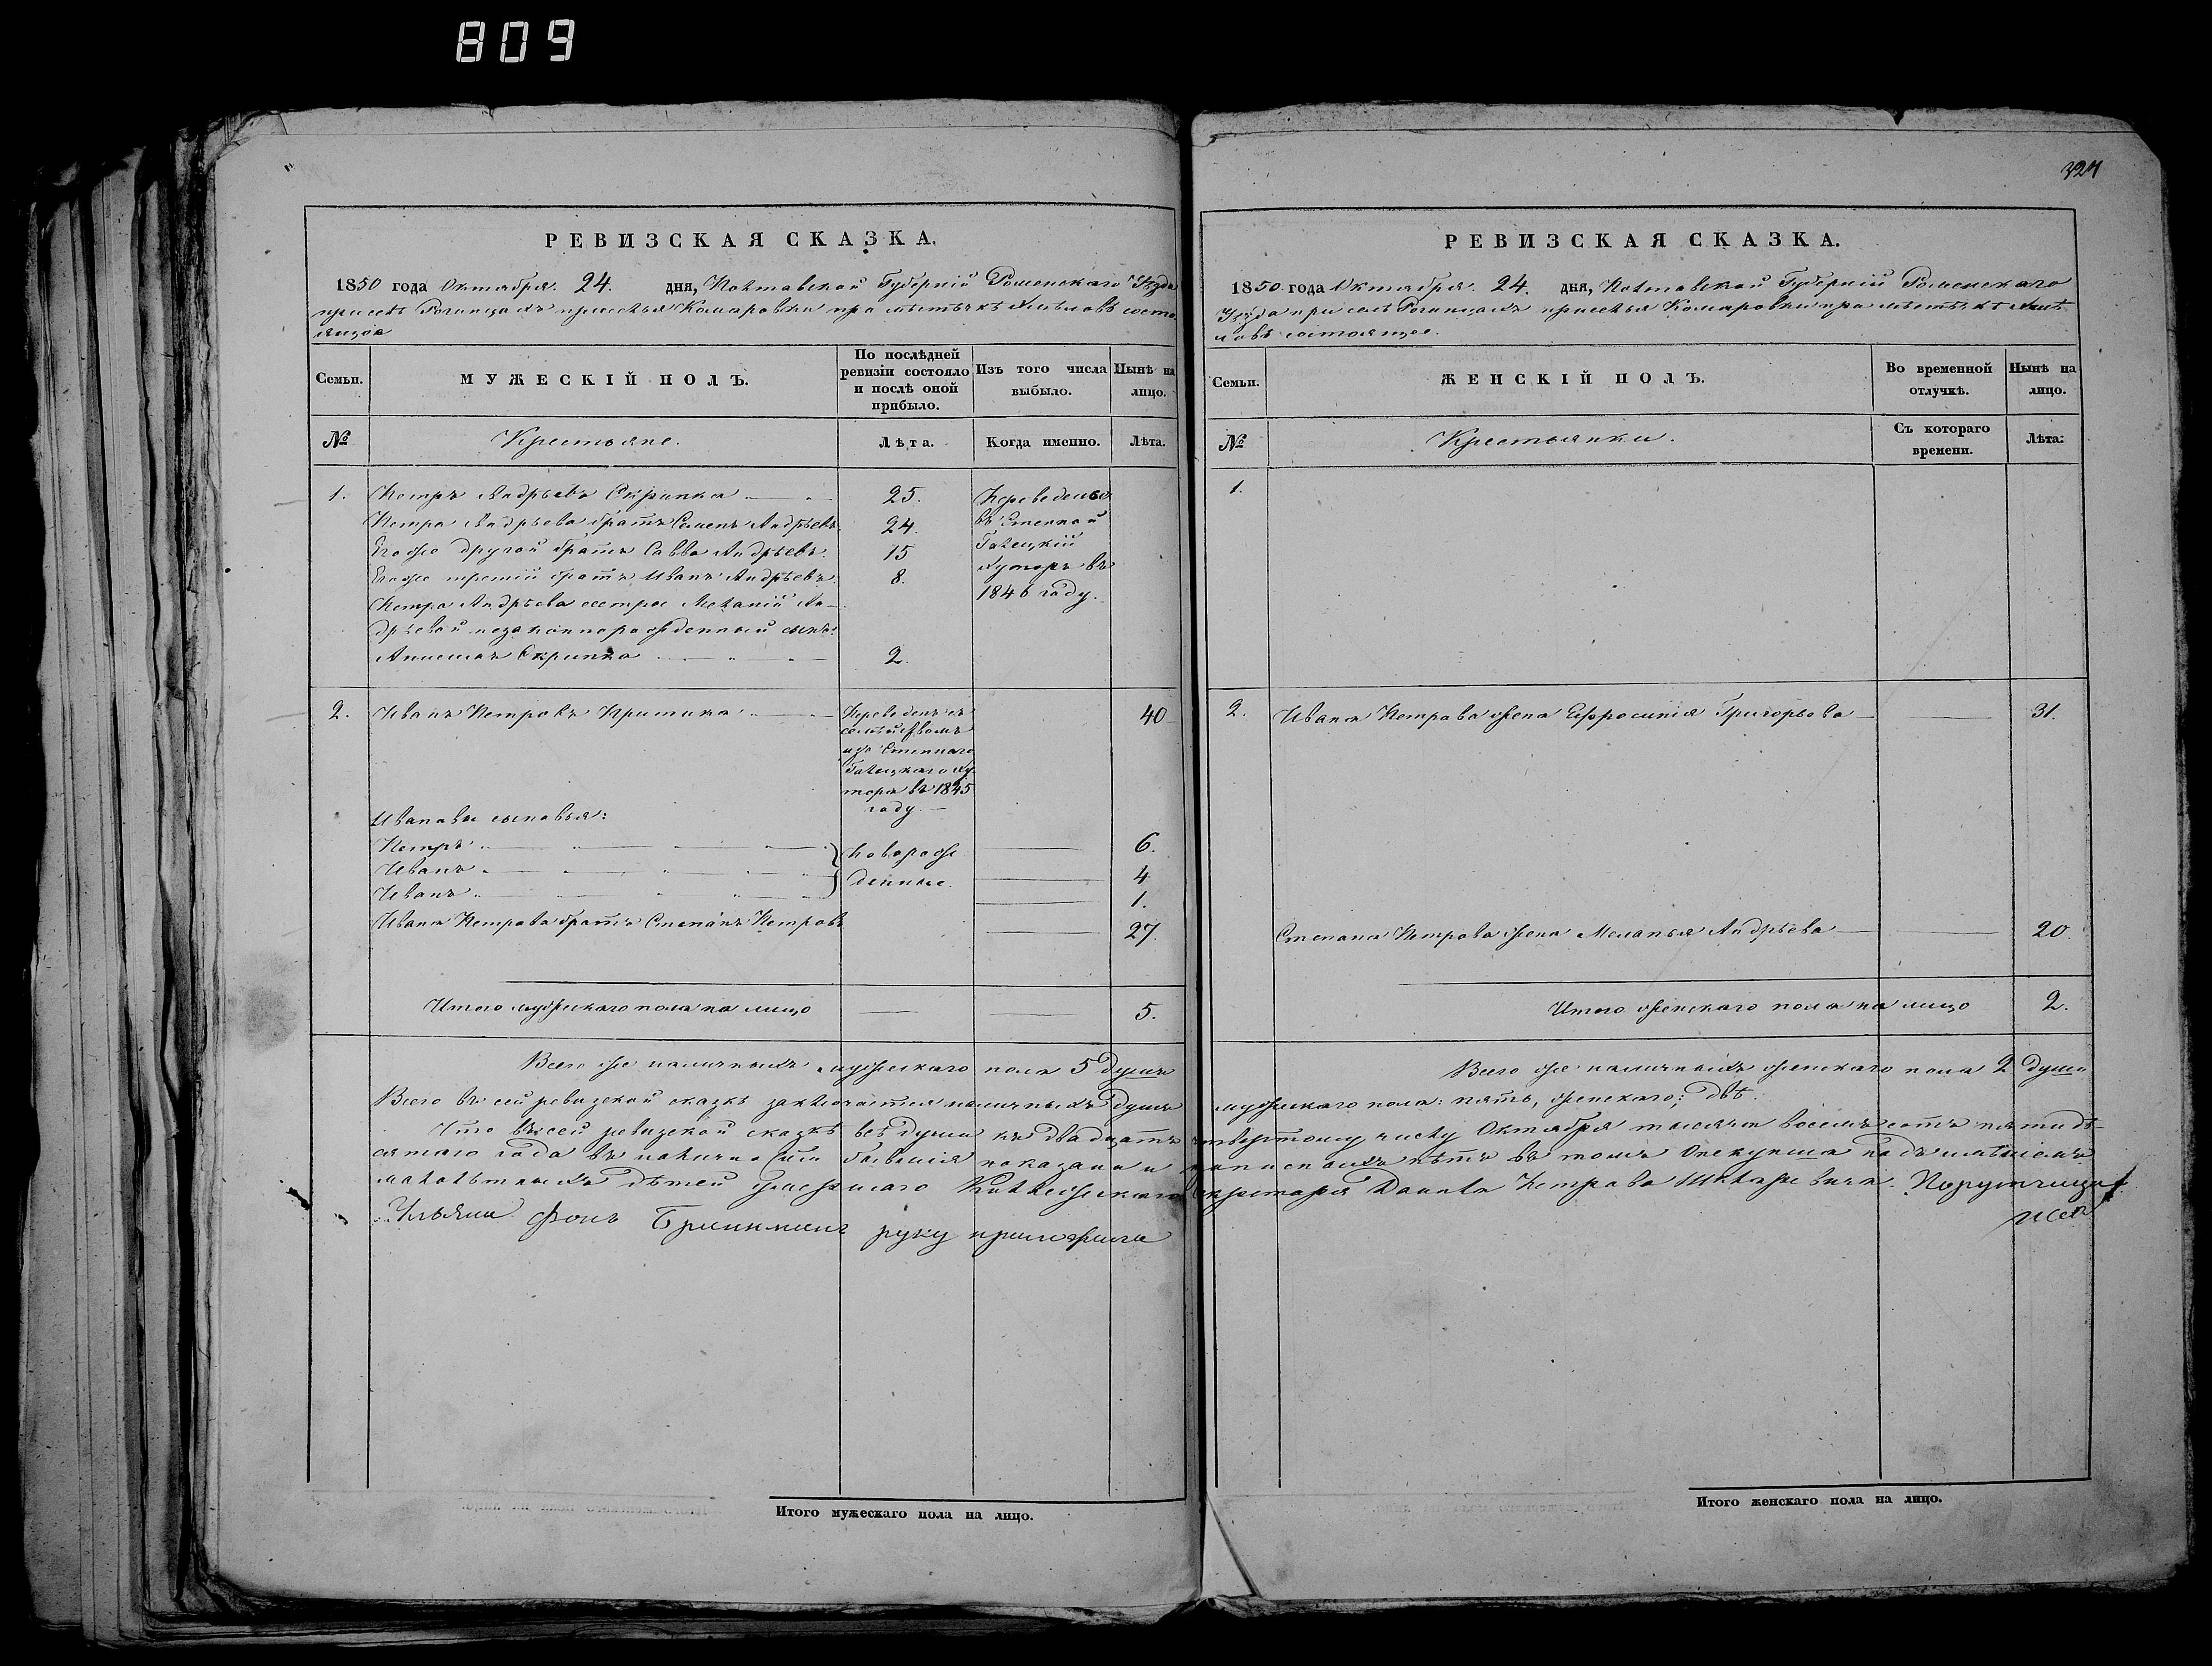 809
324
РЕВИЗСКАЯ СКАЗКА.
1850 года Октября 24. дня, Полтавской Губерніи Роменскаго Уѣзда
при селѣ Рогинцахъ приселья Комаровки при мѣстечкѣ состо
ящее
Семьи.
МУЖЕСКІЙ ПОЛЪ.
По послѣдней ревизіи состояло и послѣ оной прибыло.
Изъ того числа выбыло.
Нынѣ на лицо.
№
Крестьяне.
Лѣта.
Когда именно.
Лѣта.
1. Петръ Андрѣевъ Скрипка 25. Переведены
Петра Андрѣева братъ Семенъ Андрѣевъ 24. въ Степной
Его же другой братъ Савва Андрѣевъ. 15 Гадецкій
Его же третій братъ Иванъ Андрѣевъ. 8. хуторъ въ
Петра Андрѣева сестры Меланіи Ан- 1846 году.
дрѣевой незаконнорожденный сынъ:
Анисимъ Скрипка 2.
2. Иванъ Петровъ Притика Переведенъ съ 40
семействомъ
изъ Степнаго
Гадецкаго ху
тора въ 1845
году.
Ивановы сыновья:
Петръ 6.
Иванъ новорож 4
Иванъ денные. 1.
Ивана Петрова братъ Степанъ Петровъ 27.
Итого мужескаго пола на лицо 5.
Всего же наличныхъ мужескаго пола 5 душъ
РЕВИЗСКАЯ СКАЗКА.
1850 года Октября 24. дня, Полтавской Губерніи Роменскаго
Уѣзда при селѣ Рогинцахъ приселья Комаровки при мѣстечкѣ
состоящее.
Семьи.
ЖЕНСКІЙ ПОЛЪ.
Во временной отлучкѣ.
Нынѣ на лицо.
№
Крестьянки.
Съ котораго времени.
Лѣта.
1.
2. Ивана Петрова жена Ефросинія Григорьева 31.
Степана Петрова жена Меланья Андрѣева 20.
Итого женскаго пола на лицо 2.
Всего же наличныхъ женскаго пола 2 души
Всего въ сей ревизской сказкѣ заключается наличныхъ душъ мужескаго пола: пять, женскаго: двѣ.
Что въ сей ревизской сказкѣ всѣ души къ двадцать четвертому числу Октября тысяча восемьсотъ пятидѣ-
сятаго года въ наличности бывшія показаны и прописныхъ нѣтъ въ томъ Опекунша надъ имѣніемъ
малолѣтныхъ дѣтей Коллежскаго Секретаря Павла Петрова Поручица
Ульяна Фонъ Бринкманъ руку приложила
Итого мужескаго пола на лицо.
Итого женскаго пола на лицо.